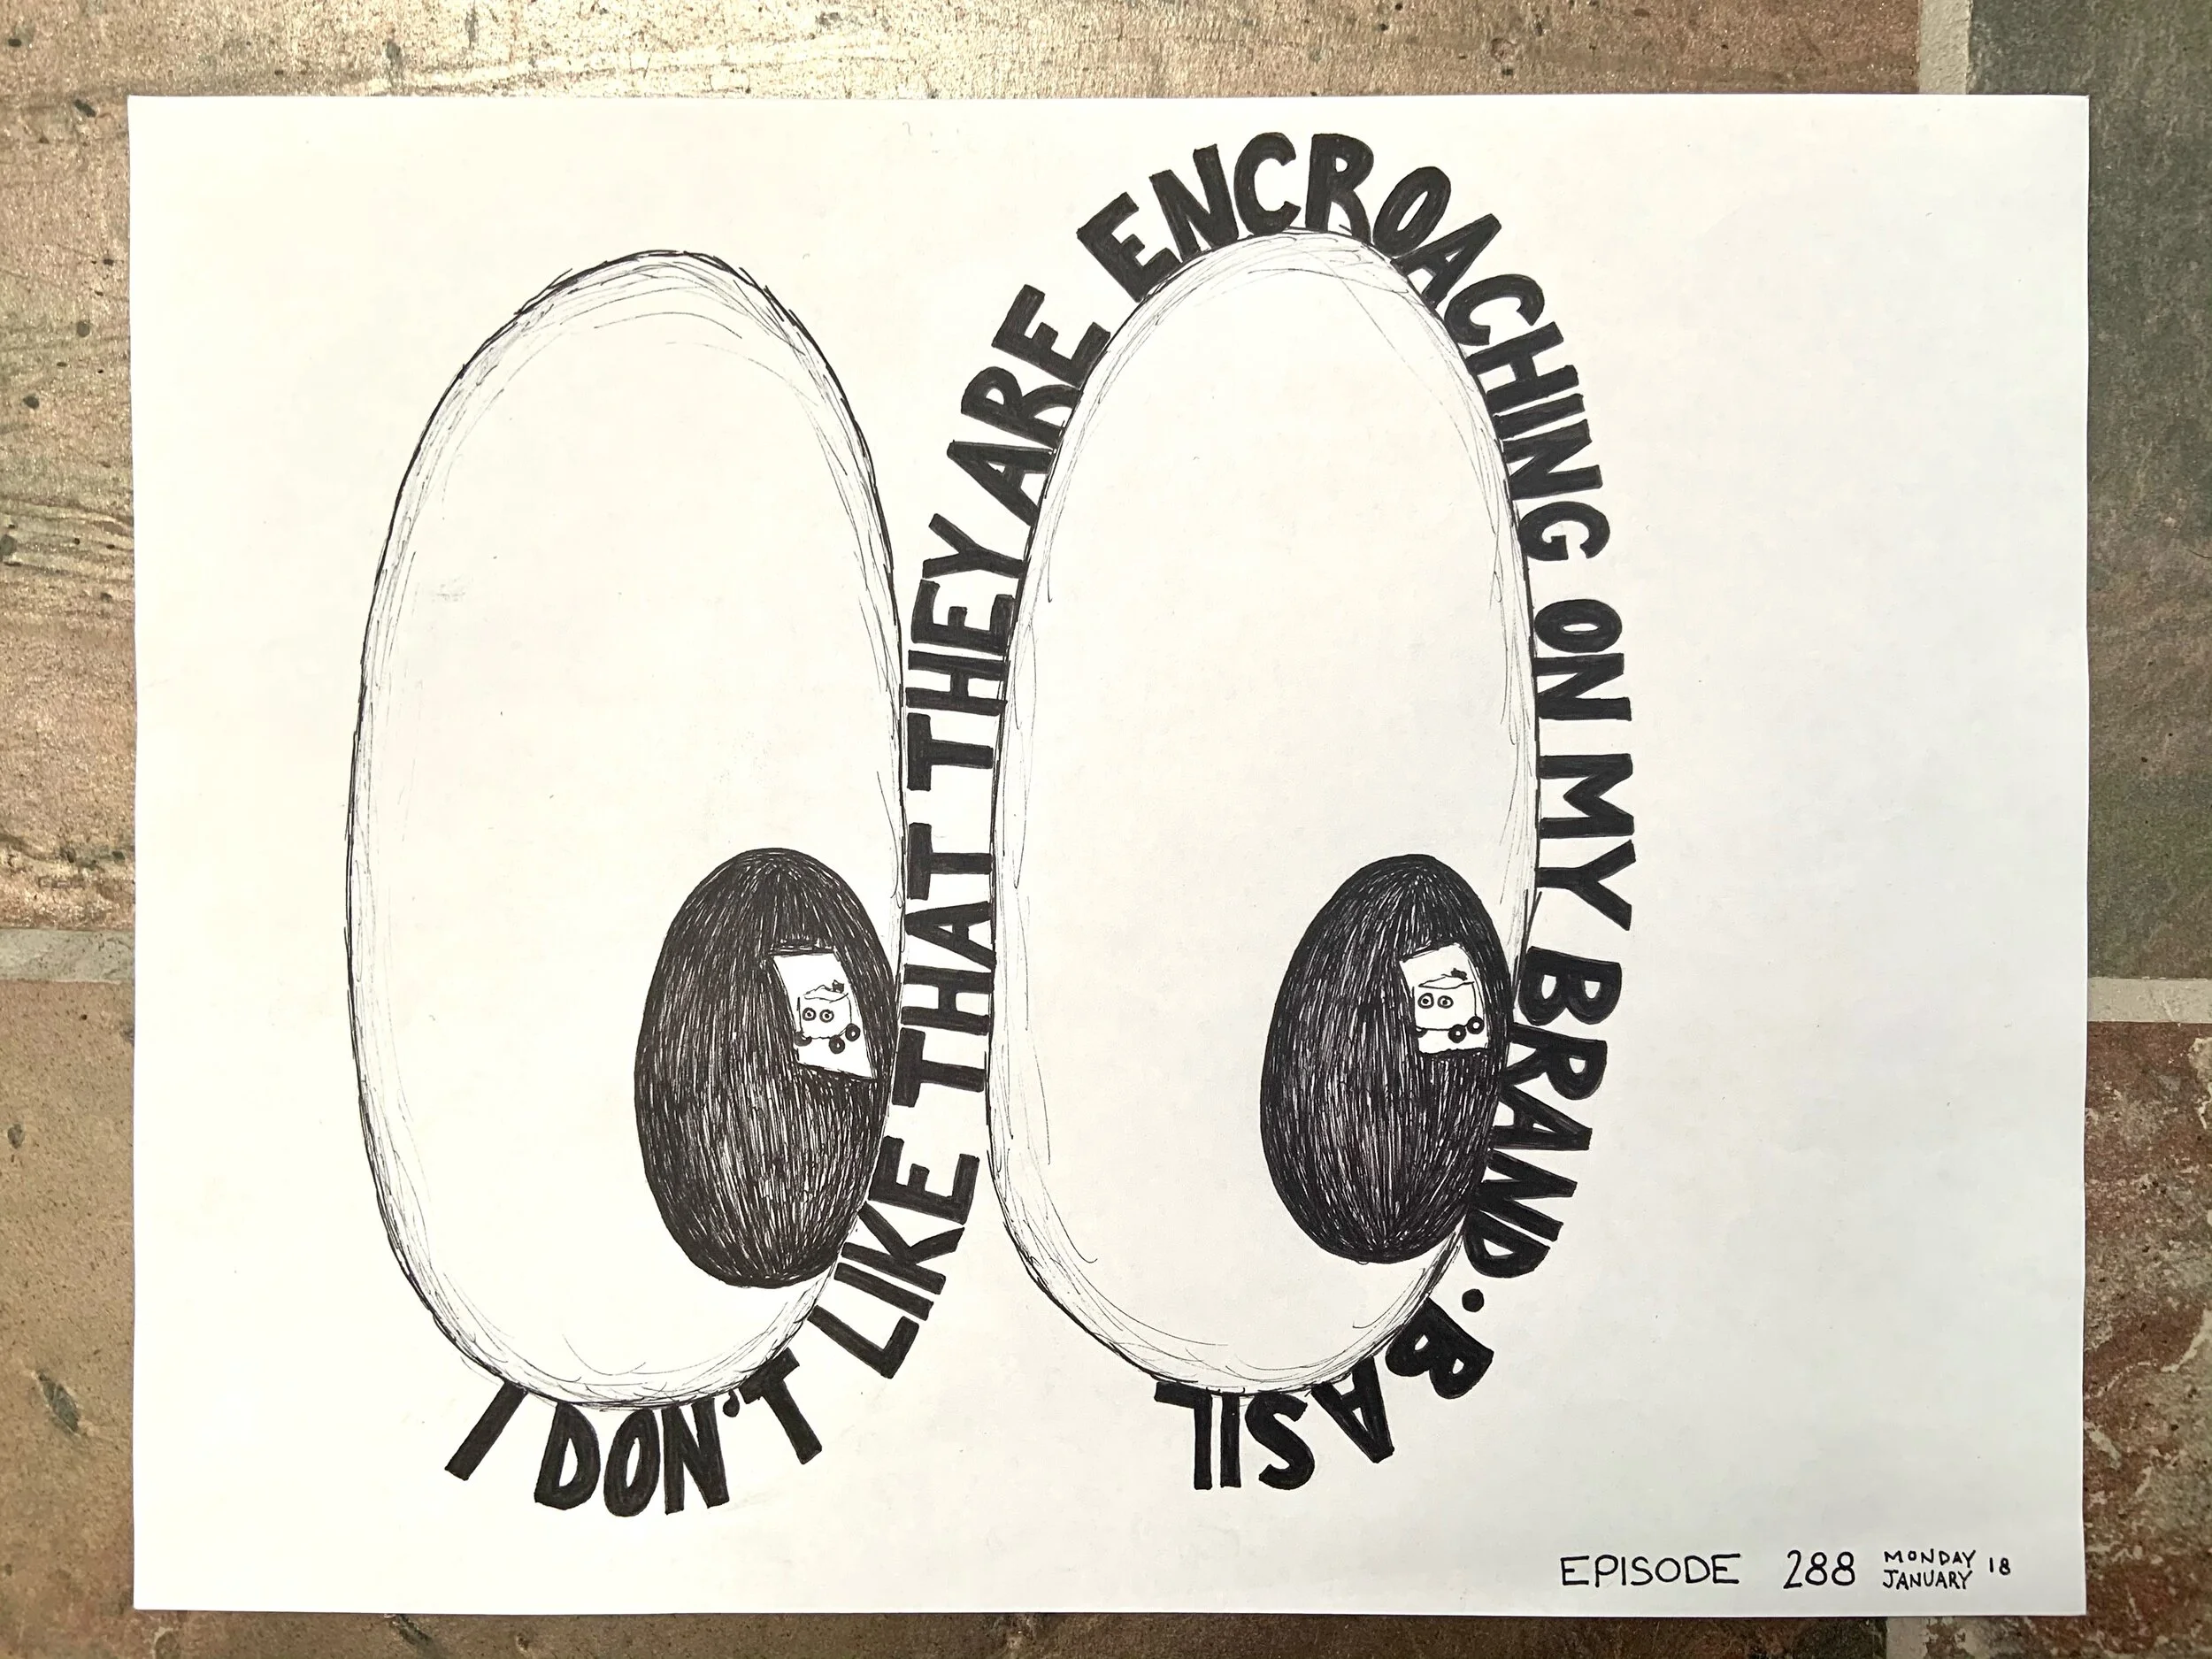 I DON'T LIKE THAT THEY ARE ENCROACHING ON MY BRAND. BASIL
EPISODE 288 MONDAY JANUARY 18